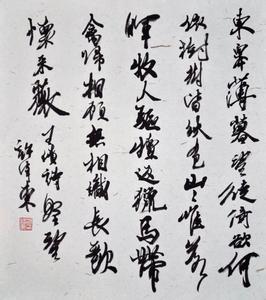 東皋薄暮望徙倚欲何
依樹樹皆秋色山々惟落
暉牧人驅犢返獵馬帶
禽歸相顧無相識長歌
懷采薇 王績詩野望